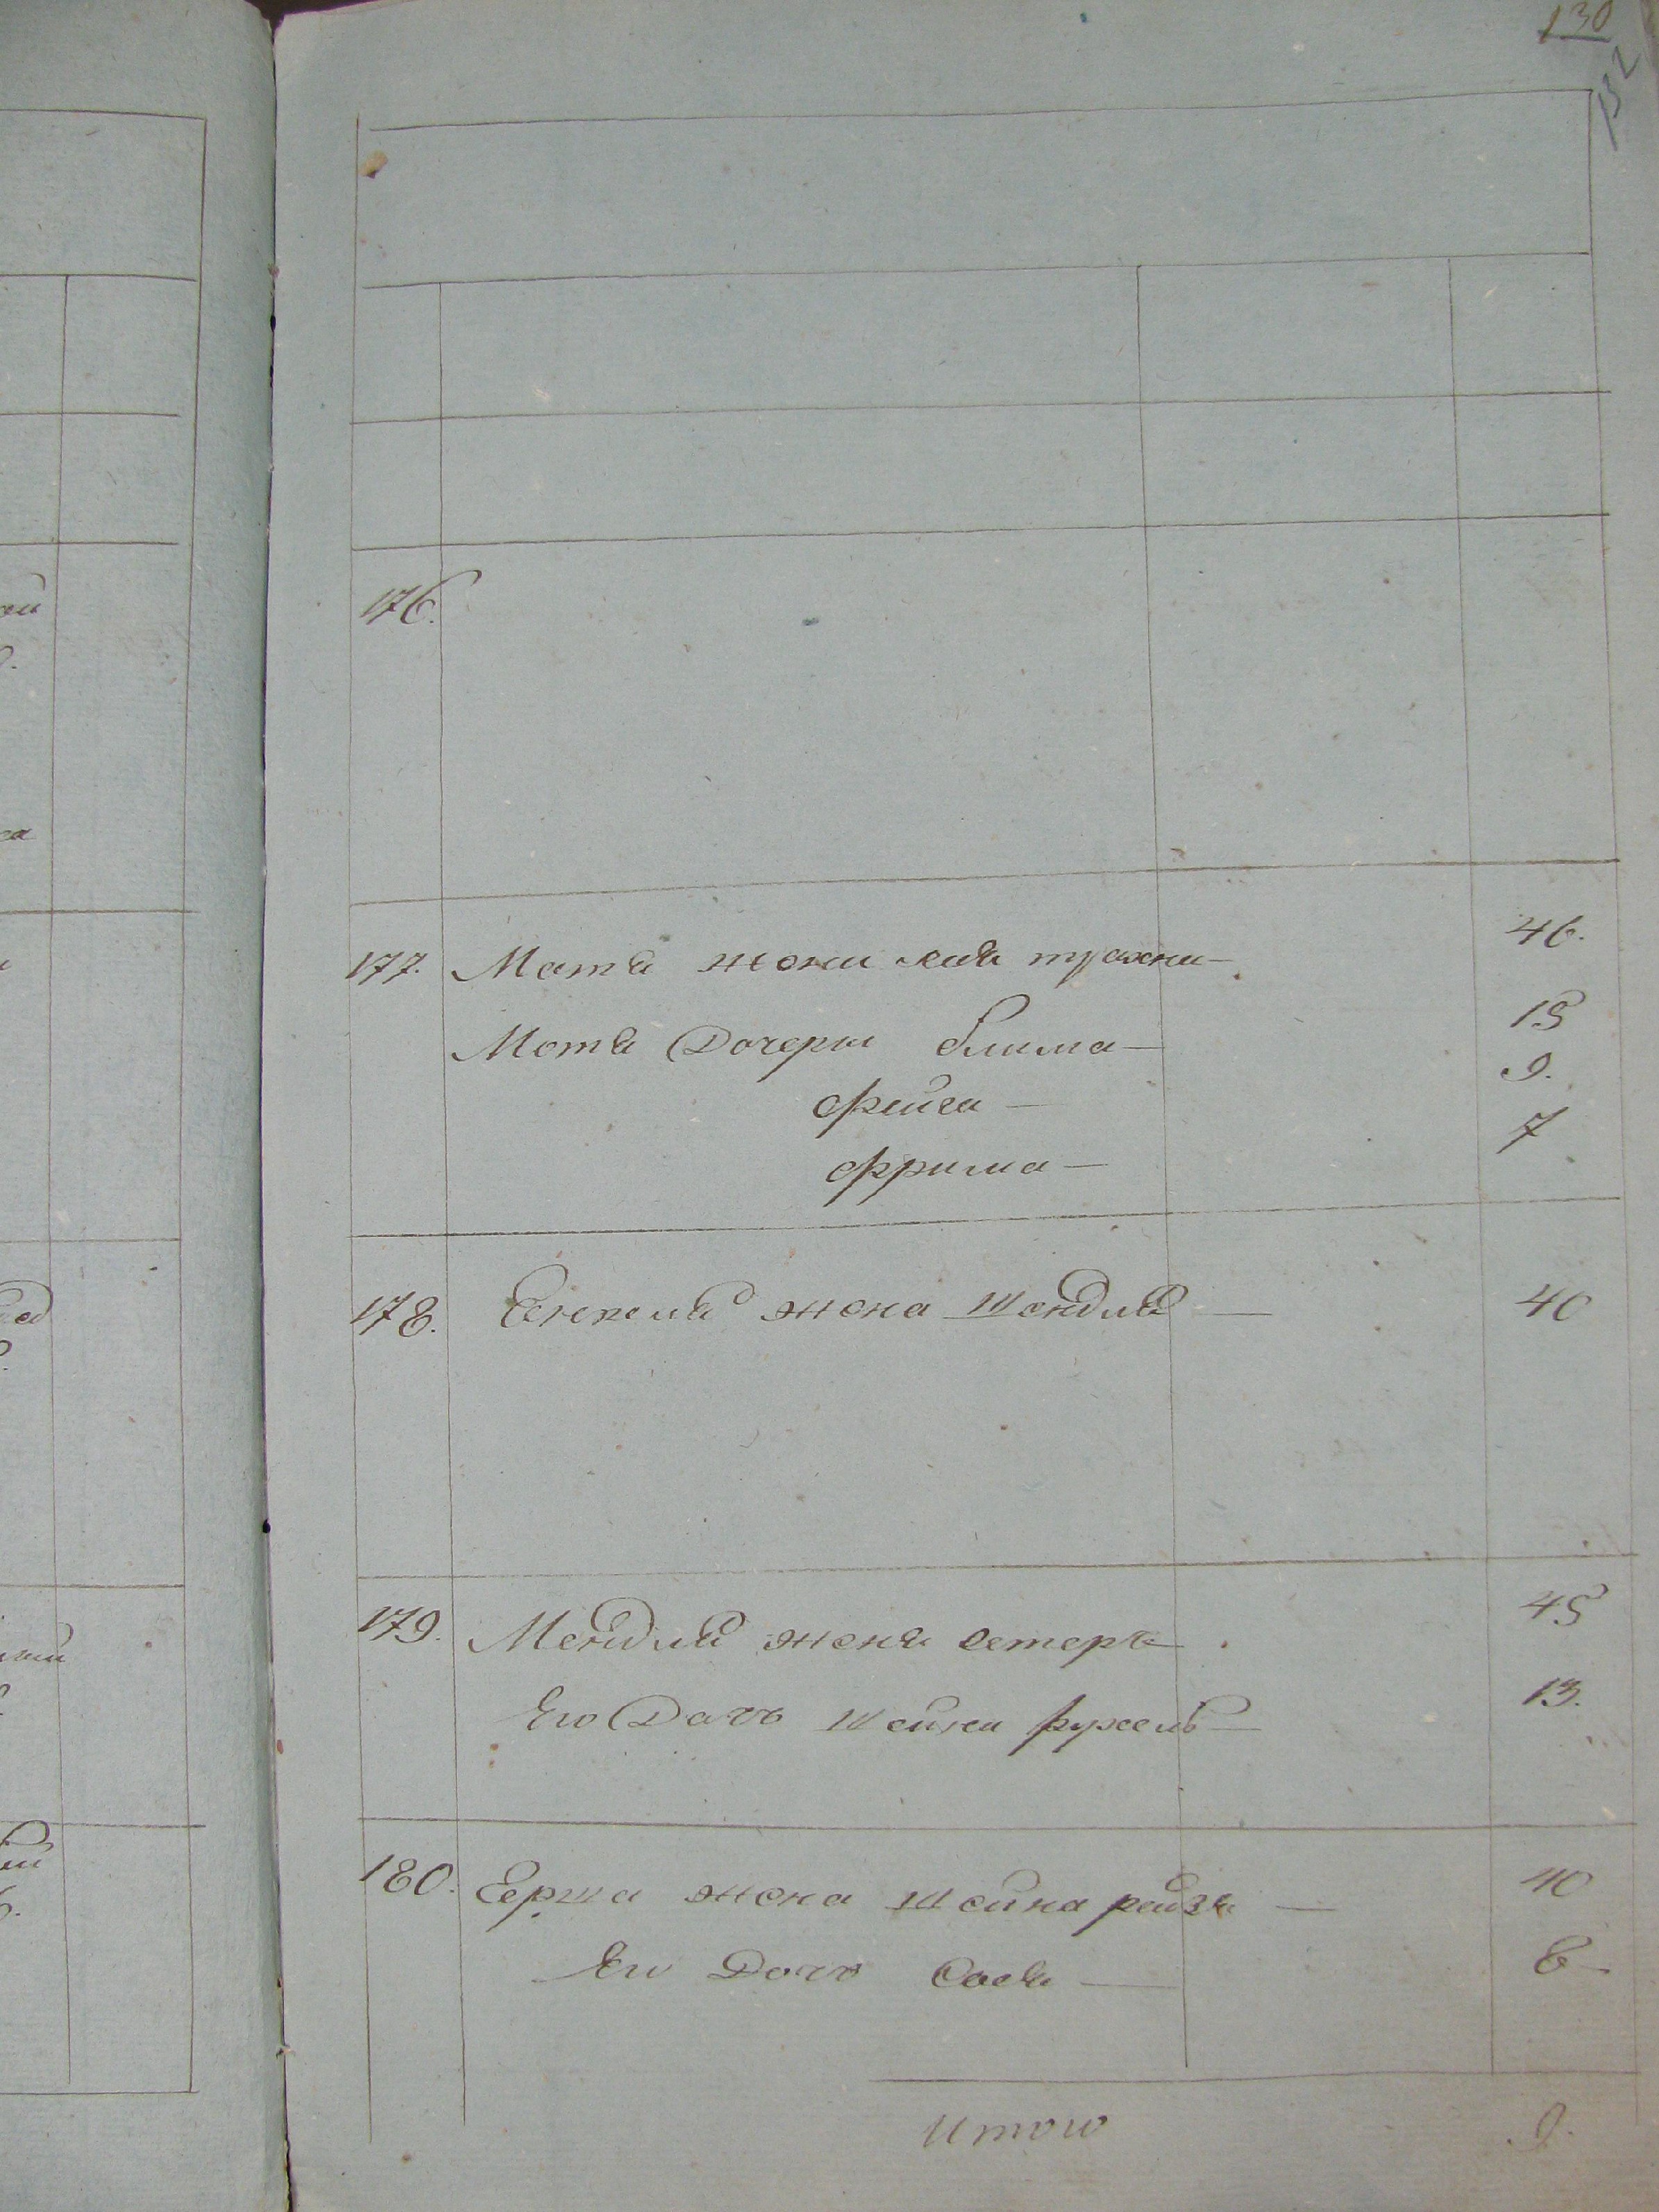 130
132
176.
177. Мотя жена хая трахна — 46.
Мотя Дочери блима — 15
фейга — 9.
фрима — 7
178. жена Шендля — 40
179. Мендля жена естеръ — 45
Его Дочь шейна рухель — 13.
180. Герша жена шейна рейзя — 40
Его Дочь Сося — 6
Итого 9.